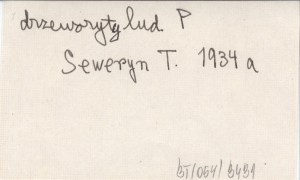 drzeworyty lud. P
Seweryn T. 1934 a
BT/054/3491